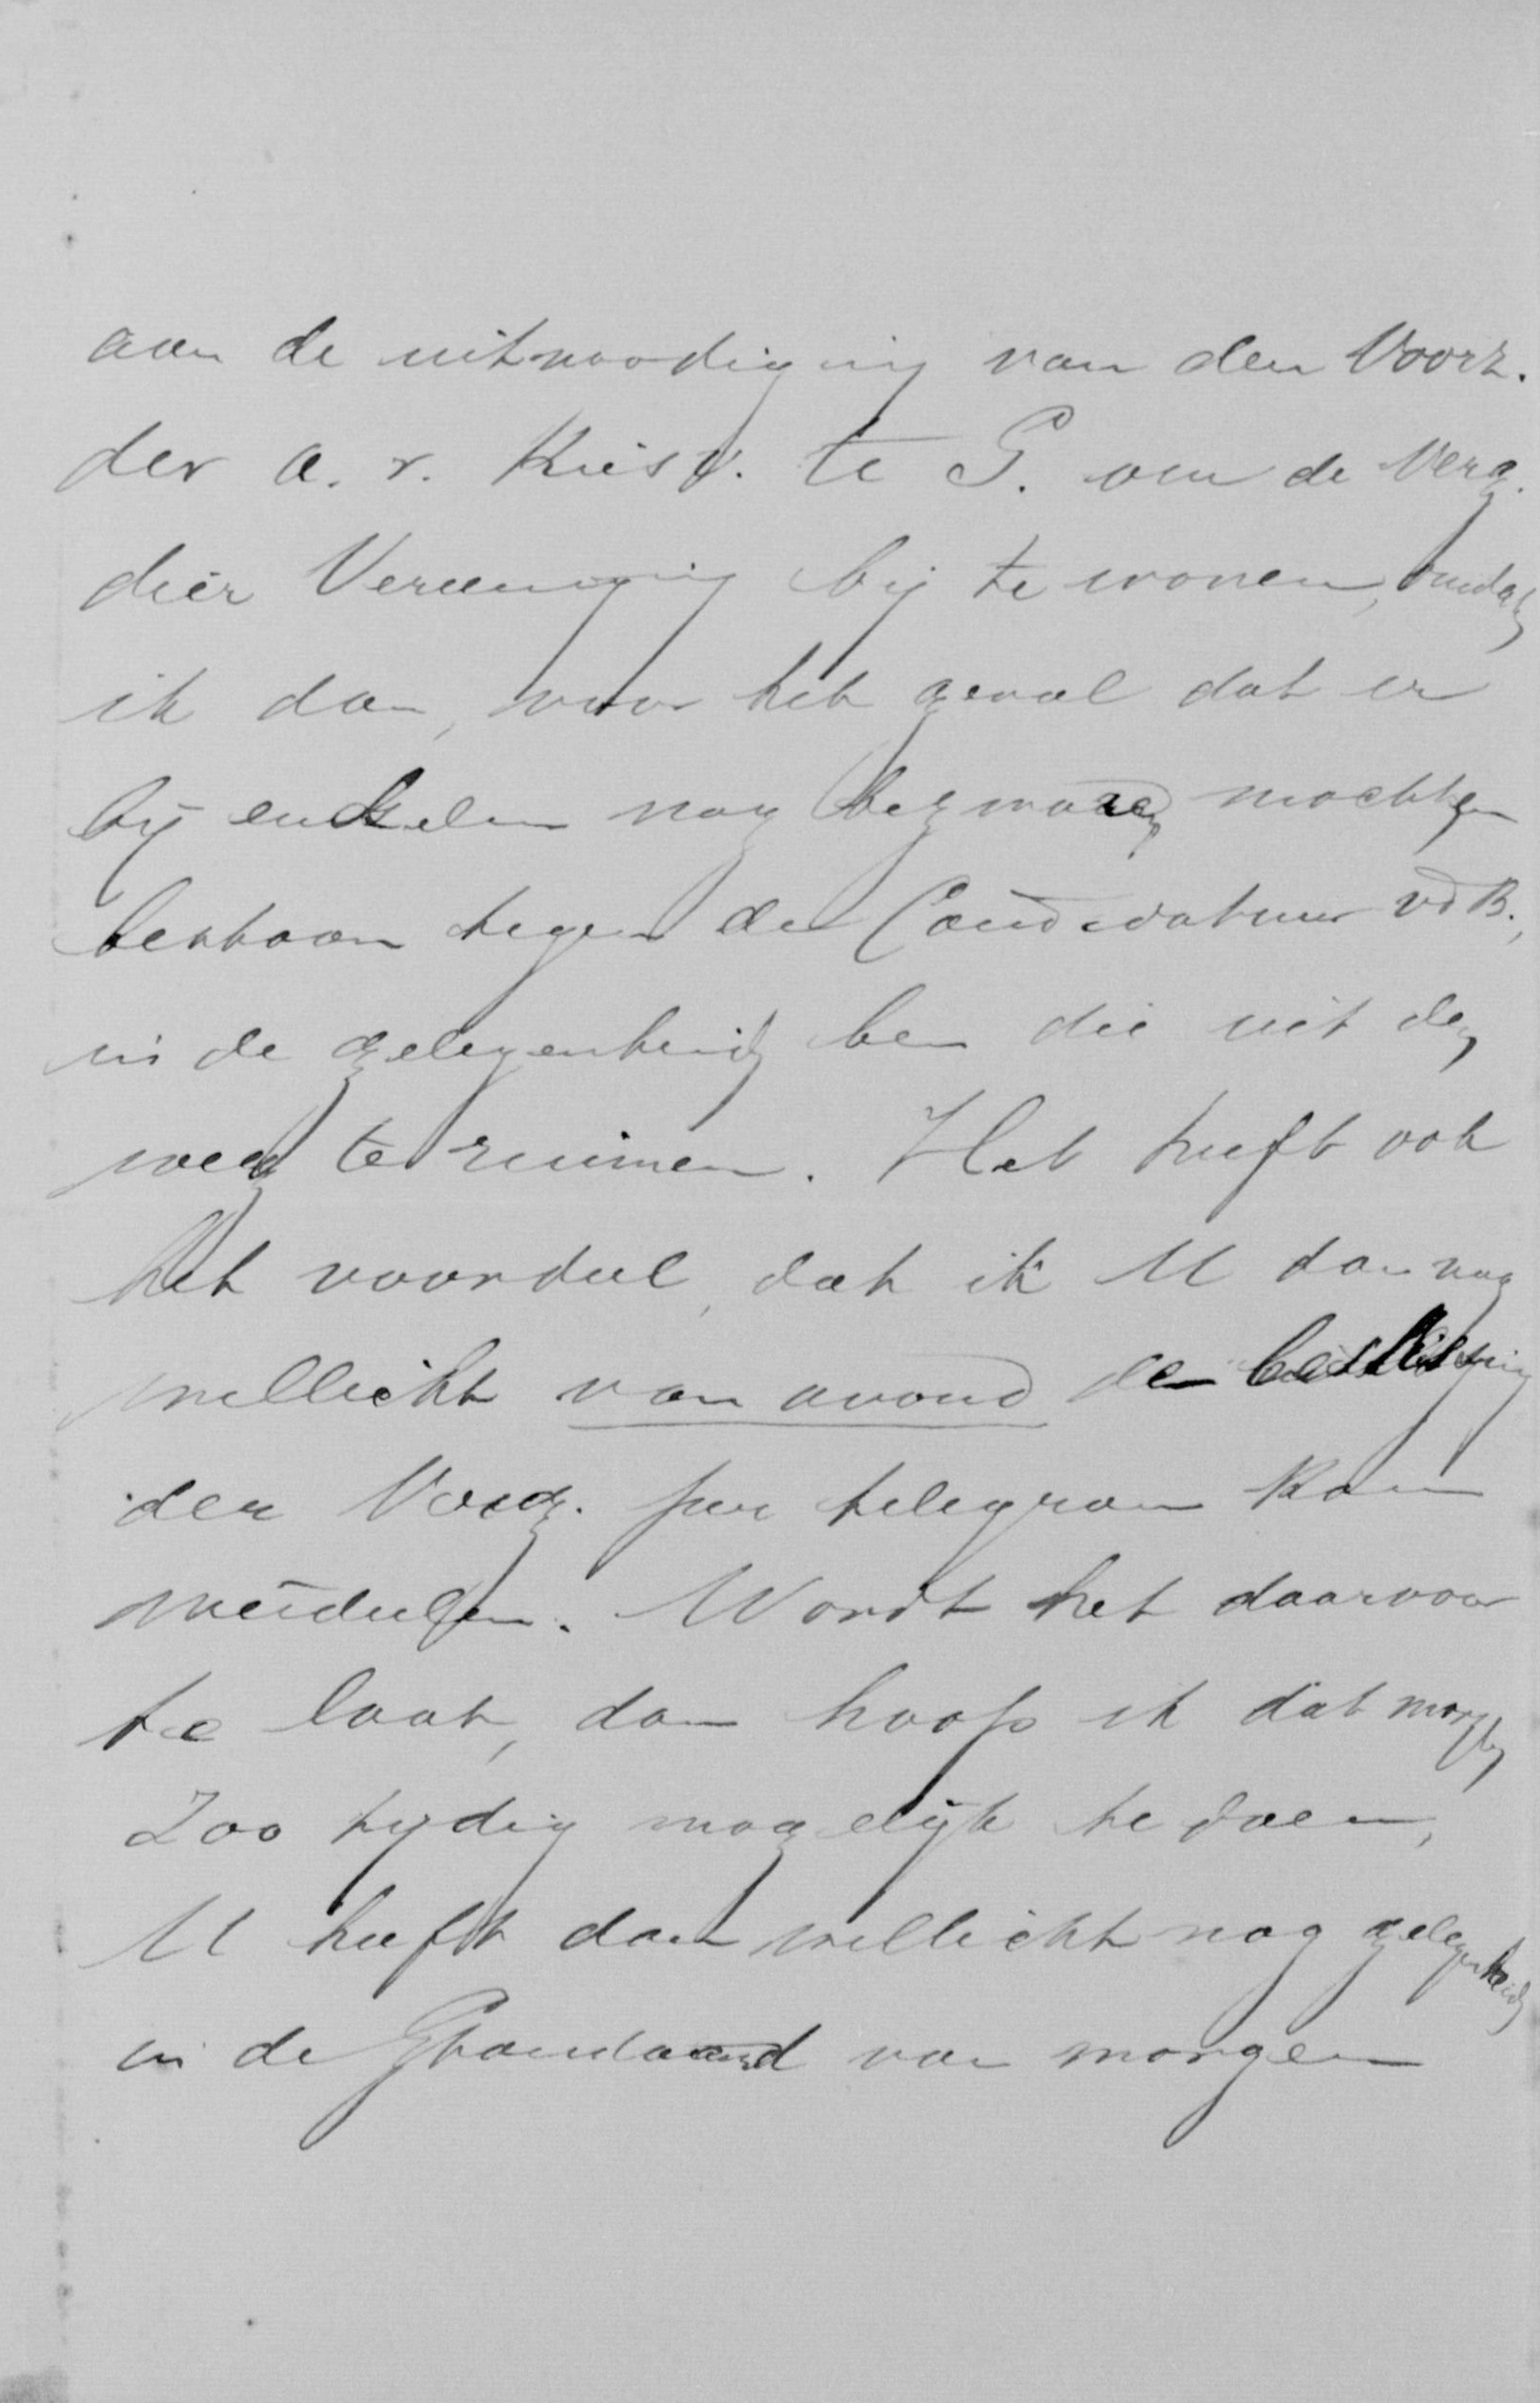 aan de uitnoodiging van den Voorz.
der a. r. Kiesv. te G. om de Verg.
dier Vereeniging bij te wonen, omdat
ik dan, voor het geval dat er
bij enkelen nog bezwaren mochten
bestaan tegen de Candidatuur vdB.,
in de gelegenheid ben die uit den
weg te ruimen. Het heeft ook
het voordeel, dat ik U dan nog
wellicht van avond de beslissing
der Verg. per telegram kan
meêdeelen. Wordt het daarvoor
te laat, dan hoop ik dat morgen
zoo tijdig mogelijk te doen,
U heeft dan wellicht nog gelegenheid
in de Standaard van morgen